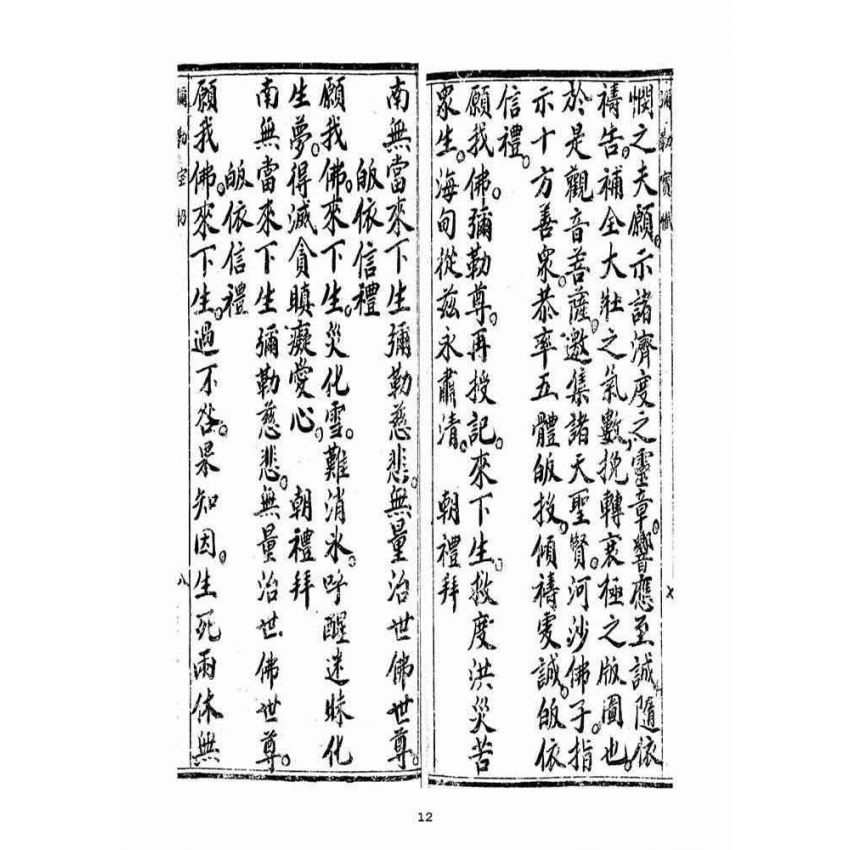 彌勒寶懺
憫之夫願。示諸濟度之靈章。響應至誠。隨依
禱告。補全大壯之氣數。挽轉衰極之版圖也。
於是觀音菩薩。邀集諸天聖賢。河沙佛子。指
示十方善眾。恭率五體皈投。傾禱虔誠。皈依
信禮。
願我佛。彌勒尊。再授記。來下生。救度洪災苦
眾生。海甸從茲永肅清。 朝禮拜
南無當來下生彌勒慈悲。無量治世佛世尊。
皈依信禮
願我佛。來下生。災化雪。難消氷。呼醒迷昧化
生夢。得滅貪瞋癡愛心。 朝禮拜
南無當來下生彌勒慈悲。無量治世佛世尊。
皈依信禮
願我佛。來下生。過不咎。果知因。生死兩休無
彌勒寶
八
12